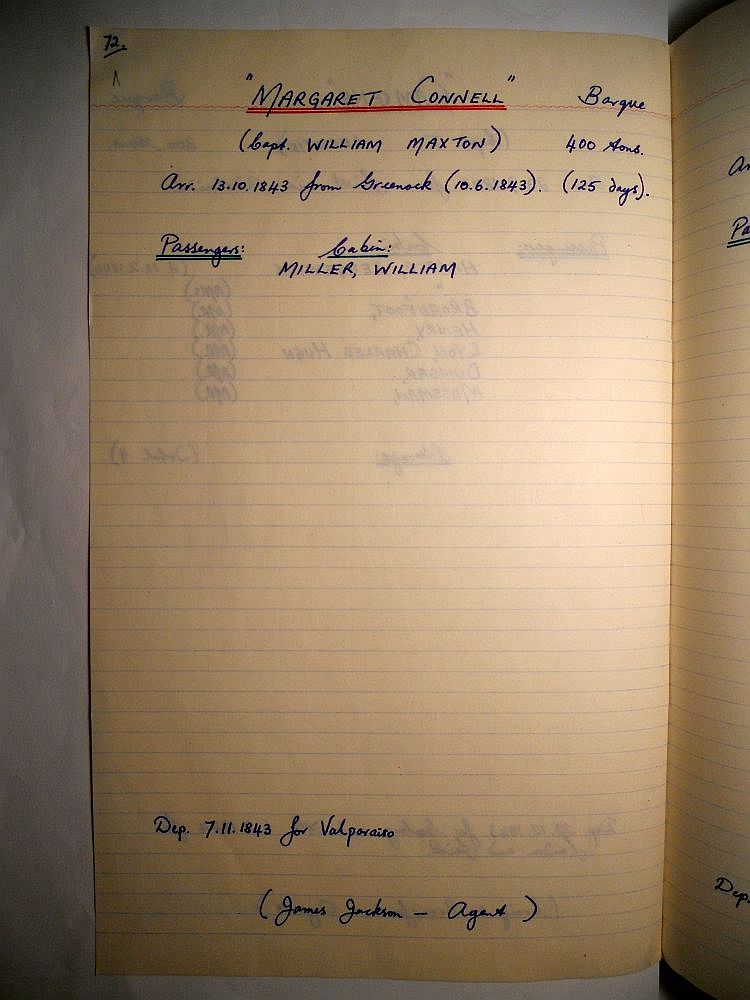 72.
"MARGARET CONNELL" Barque
(Capt. WILLIAM MAXTON) 400 tons.
Arr. 13.10.1843 from Greenock (10.6.1843). (125 days).
Passengers: Cabin:
MILLER, WILLIAM
Dep. 7.11.1843 for Valparaiso
(James Jackson — Agent)